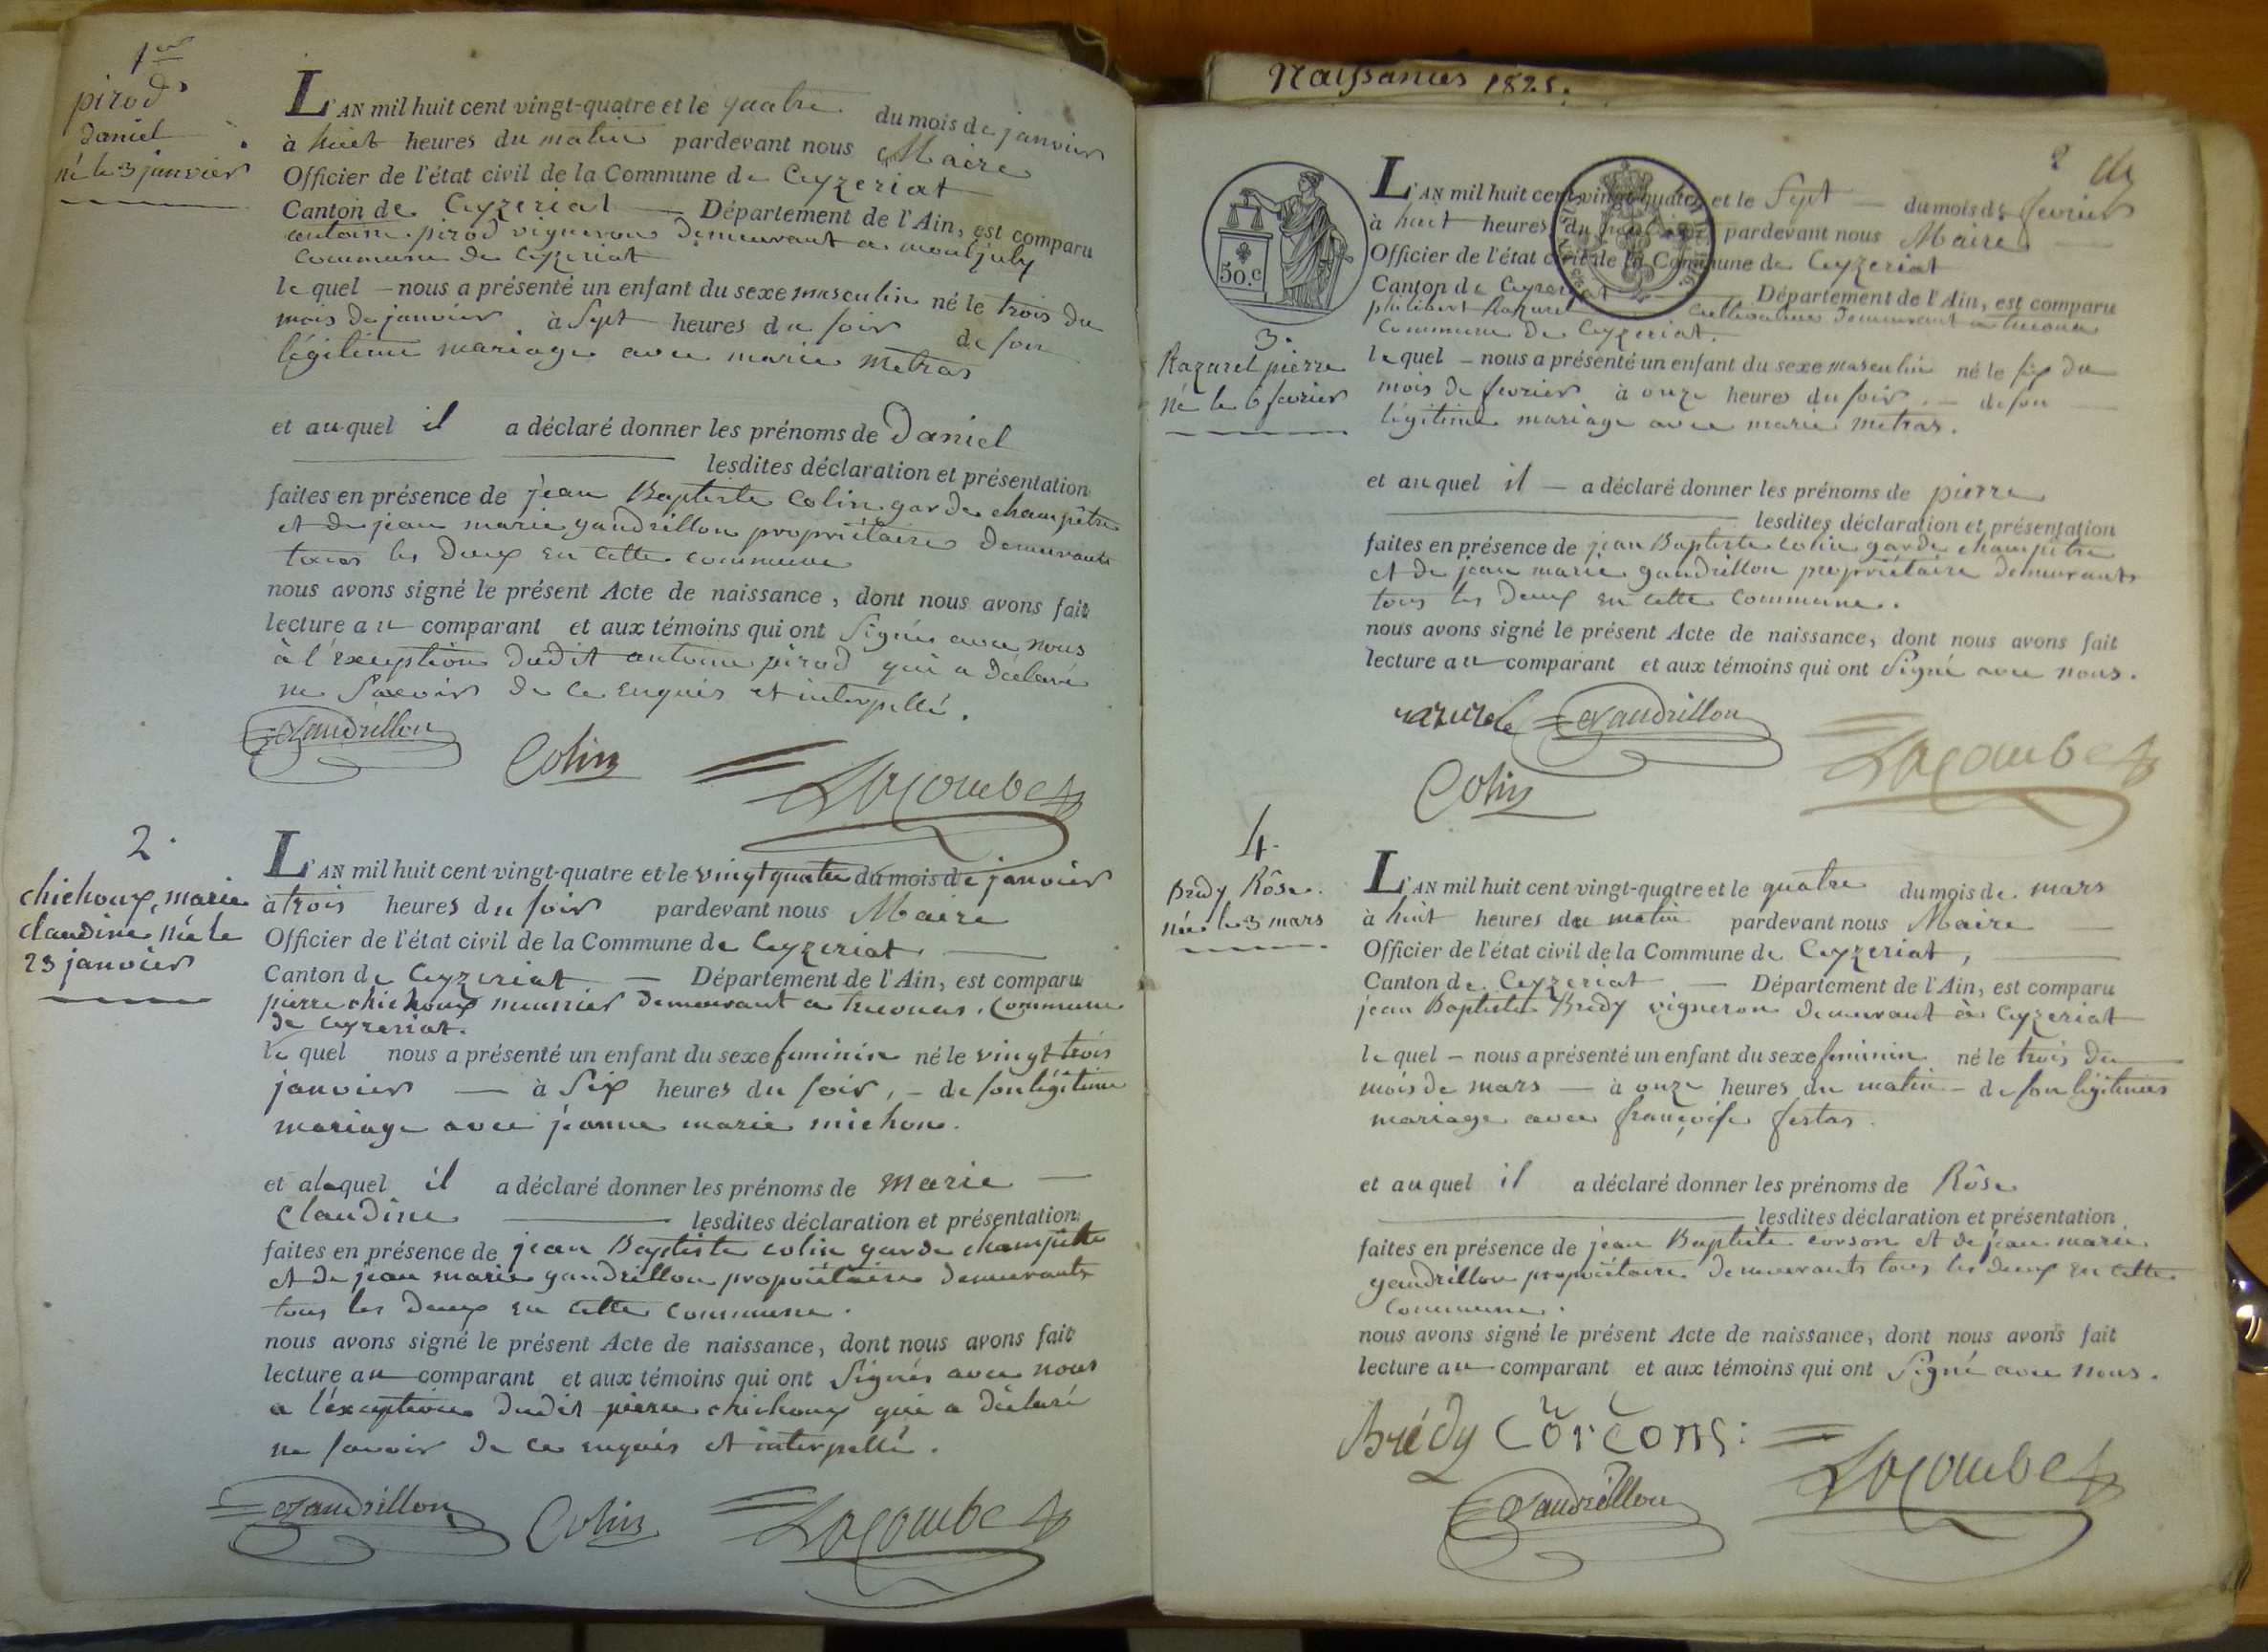 1er
pirod
daniel
né le 3 janvier
L'AN mil huit cent vingt-quatre et le quatre du mois de janvier
à huit heures du matin pardevant nous Maire
Officier de l'état civil de la Commune de Ceyzeriat
Canton de Ceyzeriat Département de l'Ain, est comparu
antoine pirod vigneron demeurant a montjuly
commune de Ceyzeriat
le quel nous a présenté un enfant du sexe masculin né le trois du
mois de janvier à Sept heures du soir de son
légitime mariage avec marie metras
et au quel il a déclaré donner les prénoms de Daniel
lesdites déclaration et présentation
faites en présence de jean Baptiste Colin garde champêtre
et de jean marie gandrillon propriétaire demeurants
tous les deux en cette commune
nous avons signé le présent Acte de naissance, dont nous avons fait
lecture au comparant et aux témoins qui ont Signés avec nous
à l'exception dudit antoine pirod qui a déclaré
ne Savoir de ce enquis et interpellé.
Gandrillon
Colin
Lacombe
2.
chichoux, marie
claudine née le
23 janvier
L'AN mil huit cent vingt-quatre et le vingt quatre du mois de janvier
à trois heures du soir pardevant nous Maire
Officier de l'état civil de la Commune de Ceyzeriat
Canton de Ceyzeriat Département de l'Ain, est comparu
pierre chichoux meunier demeurant a treconas, Commune
de ceyzeriat.
le quel nous a présenté un enfant du sexe feminin né le vingt trois
janvier à Six heures du soir, de son légitime
mariage avec jeanne marie michon.
et alaquel il a déclaré donner les prénoms de marie
Claudine lesdites déclaration et présentation
faites en présence de jean Baptiste colin garde champêtre
et de jean marie gandrillon propriétaire demeurants
tous les deux en cette commune.
nous avons signé le présent Acte de naissance, dont nous avons fait
lecture au comparant et aux témoins qui ont Signés avec nous
a l'éxception dudit pierre chichoux qui a déclaré
ne savoir de ce enquis et interpellé.
Gandrillon Colin Lacombe
Naissances 1825.
2
50.c
L'AN mil huit cent vingt-quatre et le Sept du mois de fevrier
à huit heures du pardevant nous Maire
Officier de l'état civil de la Commune de Ceyzeriat
Canton de Ceyzeriat Département de l'Ain, est comparu
philibert Razurel cultivateur demeurant a
commune de Ceyzeriat.
3.
Razurel pierre
né le 6 fevrier
le quel nous a présenté un enfant du sexe masculin né le six du
mois de fevrier à onze heures du soir de son
légitime mariage avec marie metras.
et au quel il a déclaré donner les prénoms de pierre
lesdites déclaration et présentation
faites en présence de jean Baptiste colin garde champêtre
et de jean marie gandrillon propriétaire demeurants
tous les deux en cette commune.
nous avons signé le présent Acte de naissance, dont nous avons fait
lecture au comparant et aux témoins qui ont Signé avec nous.
razurel Gandrillon
Colin Lacombe
4.
Bredy Rôse
née le 3 mars
L'AN mil huit cent vingt-quatre et le quatre du mois de mars
à huit heures du matin pardevant nous Maire
Officier de l'état civil de la Commune de Ceyzeriat,
Canton de Ceyzeriat Département de l'Ain, est comparu
jean Baptiste Bredy vigneron demeurant à Ceyzeriat
le quel nous a présenté un enfant du sexe feminin né le trois du
mois de mars à onze heures du matin de son légitime
mariage avec françoise festas.
et au quel il a déclaré donner les prénoms de Rôse
lesdites déclaration et présentation
faites en présence de jean Baptiste corson et de jean marie
gandrillon propriétaire demeurants tous les deux en cette
commune.
nous avons signé le présent Acte de naissance, dont nous avons fait
lecture au comparant et aux témoins qui ont Signé avec nous.
Brédy Corcons:
Gandrillon Lacombe